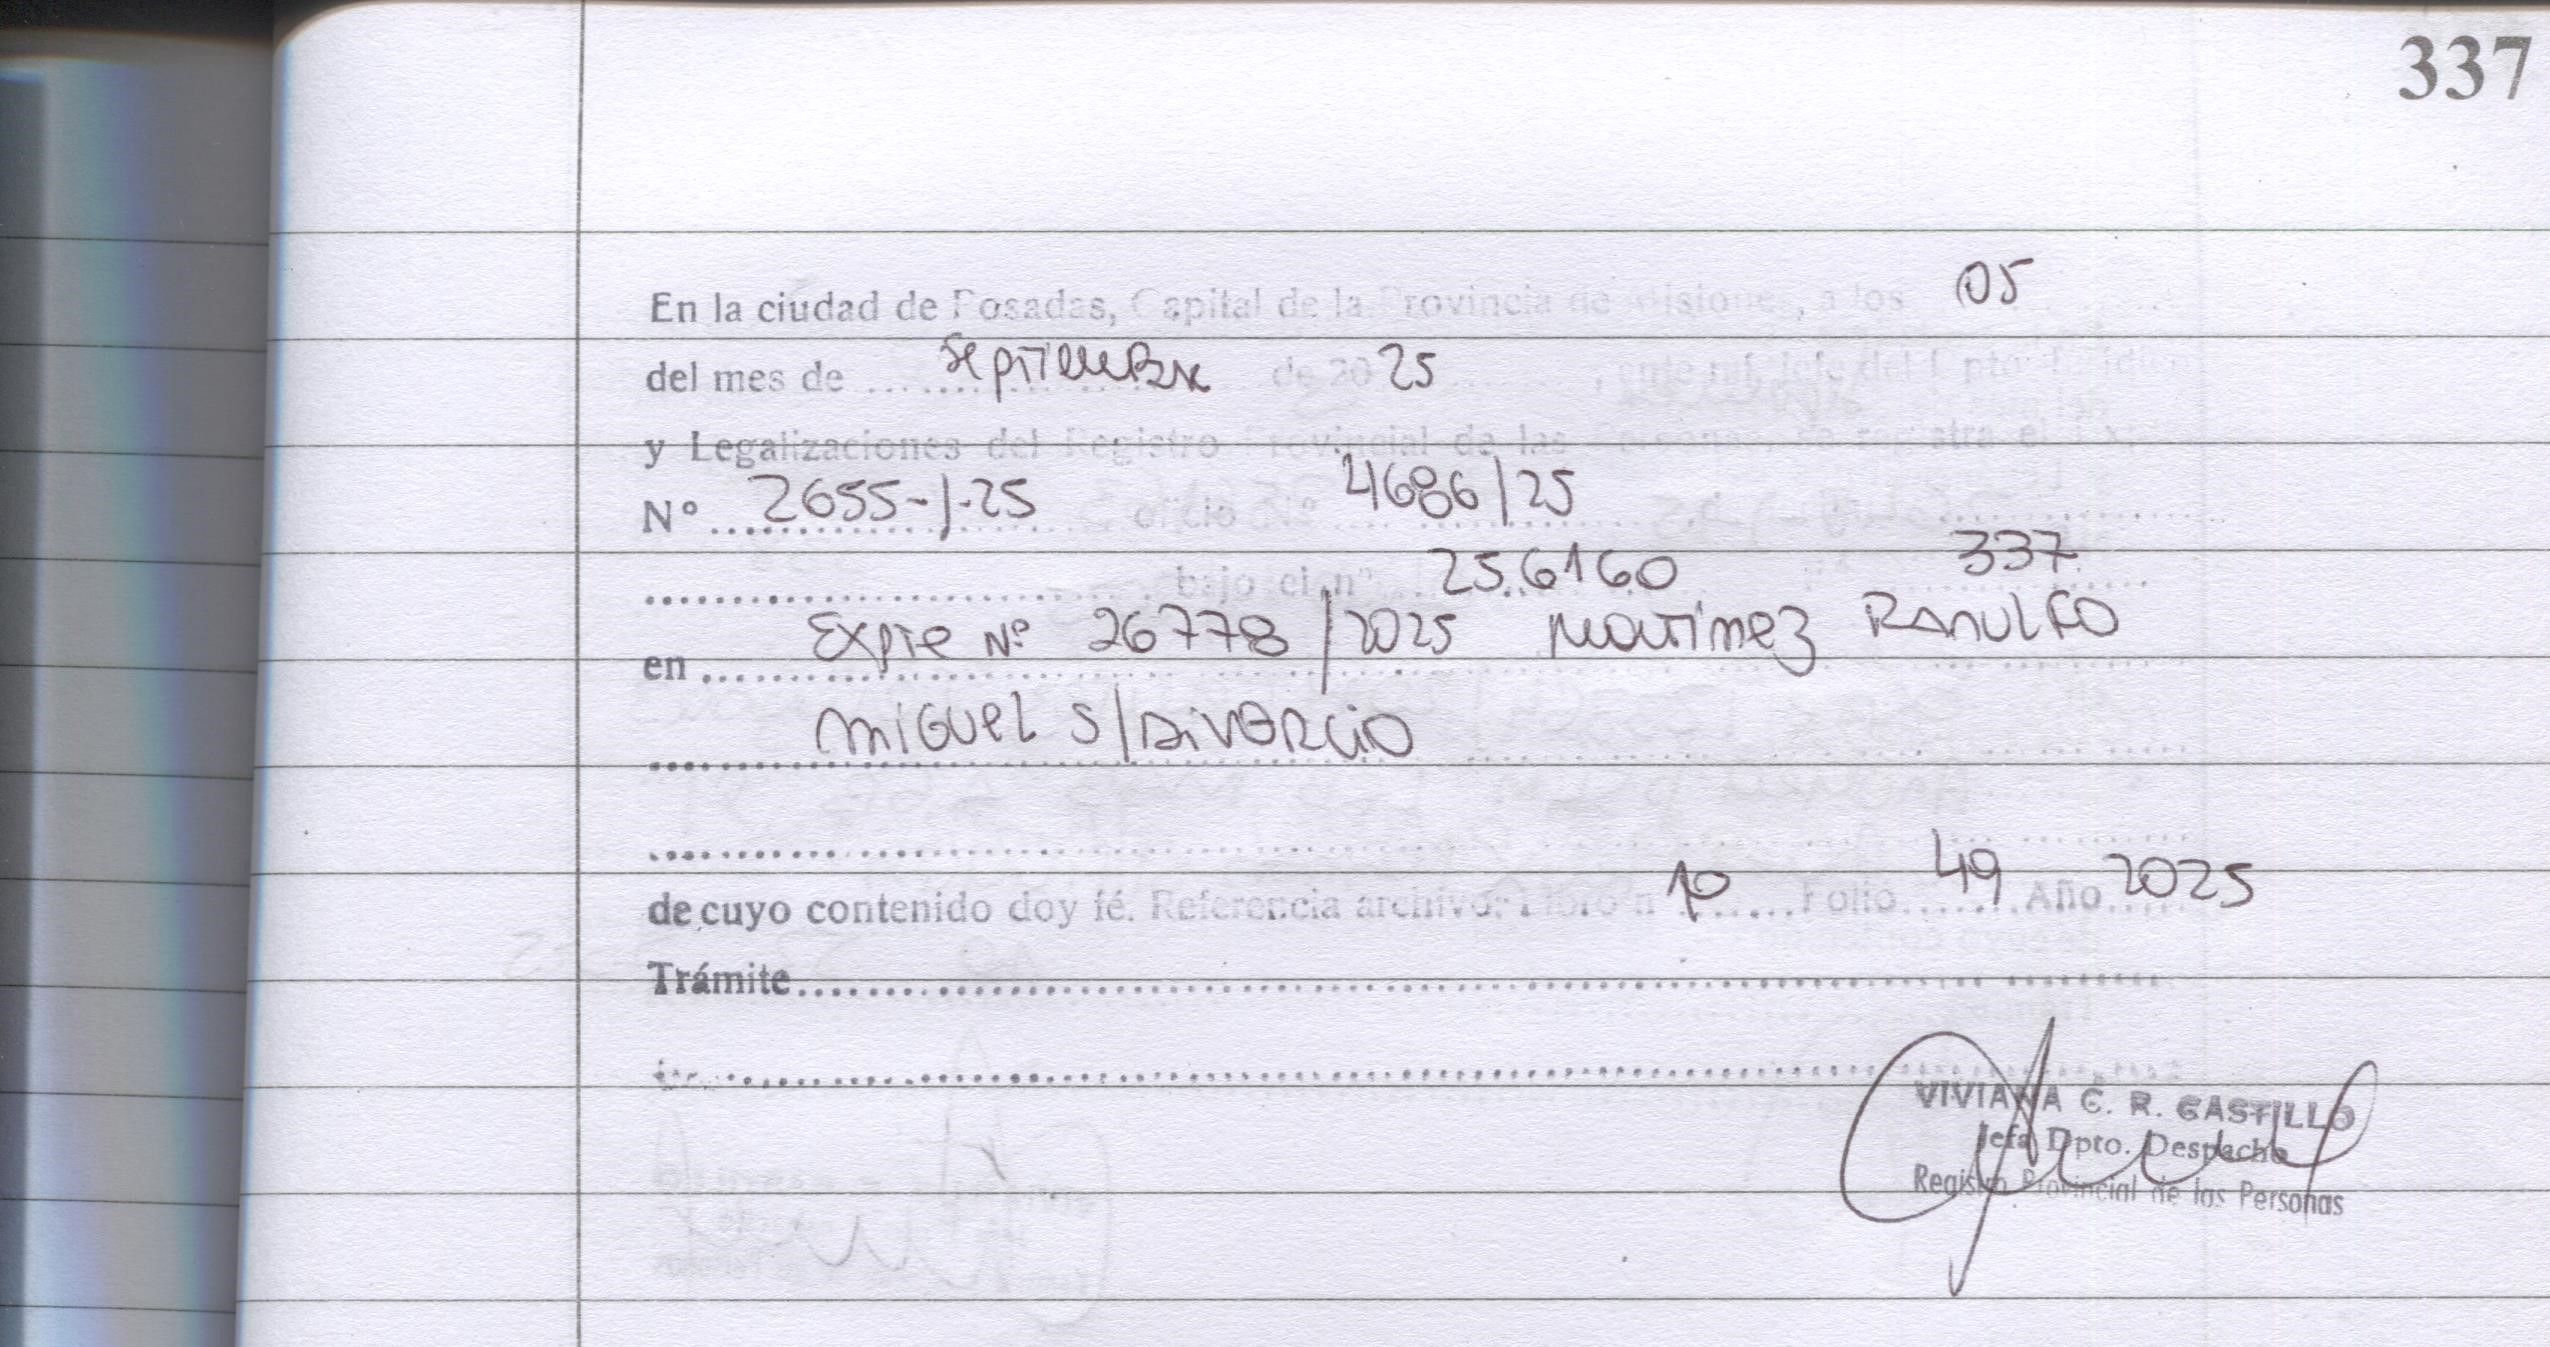 337
En la ciudad de Posadas, Capital de la Provincia de Misiones, a los 05
del mes de septiembre de 20 25, ante mí, Jefe del Dpto.
y Legalizaciones del Registro Provincial de las Personas, se registra el
N° 2655-/-25 oficio N° 4686/25
bajo el n° 256160 337
en Expte Nº 26778/2025 Martinez RANULFO
MIGUEL S/DIVORCIO
de cuyo contenido doy fé. Referencia archivo: Libro n° 10 Folio 49 Año 2025
Trámite
VIVIANA C. R. CASTILLO
Jefa Dpto. Despacho
Registro Provincial de las Personas